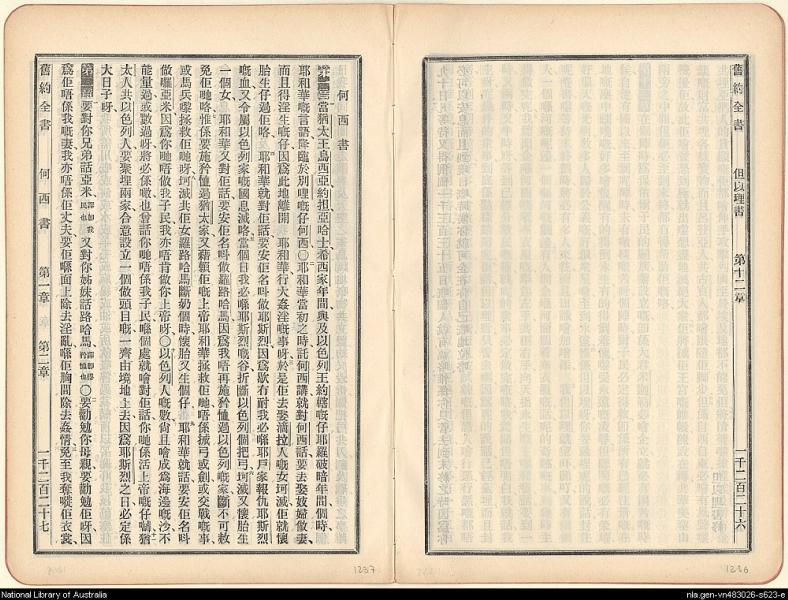 舊約全書 但以理書 第十二章 一千二百二十六
何西書
當猶太王烏西亞約担亞哈士希西家年間與及以色列王約轄嘅仔耶羅破暗年間個時、
耶和華嘅言語降臨於別哩嘅仔何西〇耶和華當初之時託何西講就對何西話要去娶妓婦做妻
而且得淫生嘅仔因爲此地離開 耶和華行大姦淫嘅事呀於是佢去娶滴拉人嘅女坷滅佢就懷
胎生仔過佢咯、耶和華就對佢話要安佢名叫做耶斯烈因爲歇有耐我必喺耶戶家報仇耶斯烈
嘅血又令屬以色列家嘅國息滅咯當個日我必喺耶斯烈嘅谷折斷以色列個把弓坷滅又懷胎生
一個女、耶和華又對佢話要安佢名叫做羅路哈馬因爲我唔再施矜恤過以色列嘅家斷不可赦
免佢哋咯惟係要施矜恤過猶太家又藉賴佢嘅上帝耶和華拯救佢哋唔係搣弓或劍或交戰嘅事
或馬兵嚟拯救佢哋呀坷滅共佢女羅路哈馬斷奶個時懷胎又生個仔、耶和華就話要安佢名叫
做囉亞米因爲你哋唔做我子民我亦唔肯做你上帝呀〇以色列人嘅數尙且噲成爲海邊嘅沙不
能量過或數過呀將必係噉也曾話你哋唔係我子民喺個處就噲對佢話你哋係活上帝嘅仔嘑猶
太人共以色列人要聚埋兩家合意設立一個做頭目嘅一齊由境地上去因爲耶斯烈之日必定係
大日子呀
要對你兄弟話亞米 譯卽我民也 又對你姊妹話路哈馬 譯卽得矜恤也 〇要勸勉你母親要勸勉佢呀因
爲佢唔係我嘅妻我亦唔係佢丈夫要佢喺面上除去淫亂喺佢胸間除去姦情免至我奪嘥佢衣裳
舊約全書 何西書 第一章 第二章 一千二百二十七
1237
1236
National Library of Australia
nla.gen-vn483026-s623-e